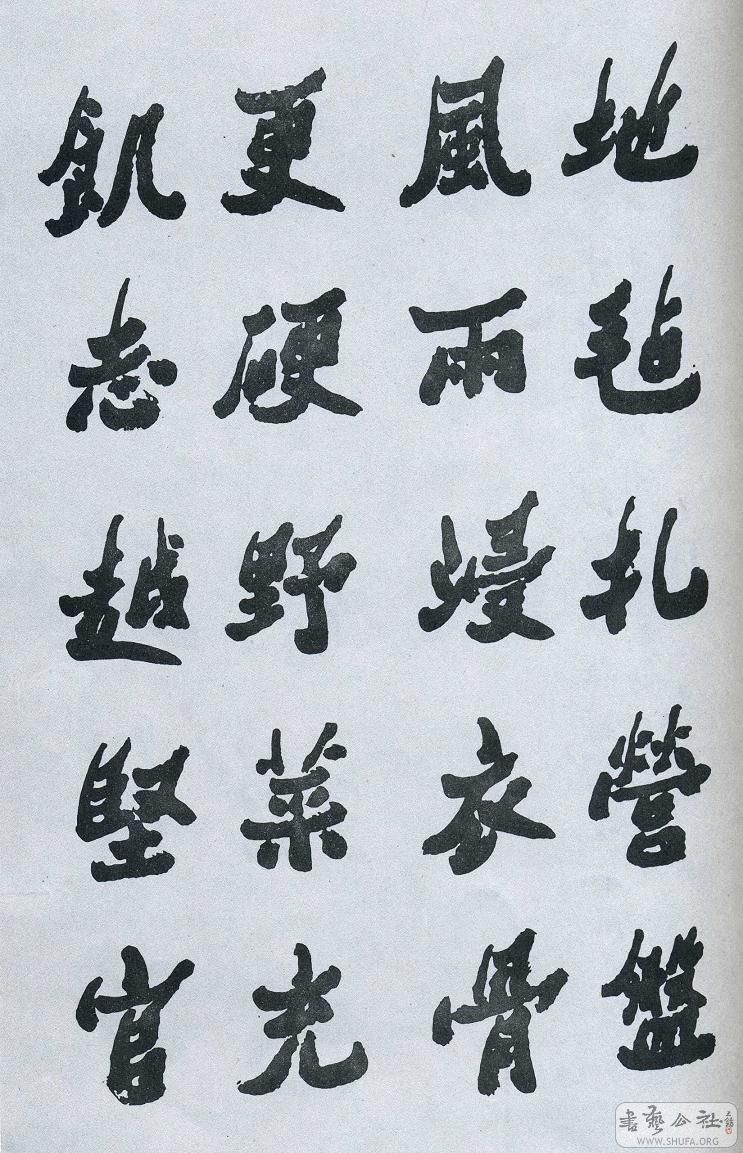 地毡扎營盤
風雨浸衣骨
更硬野菜充
飢志越堅官
書藝公社
WWW.SHUFA.ORG